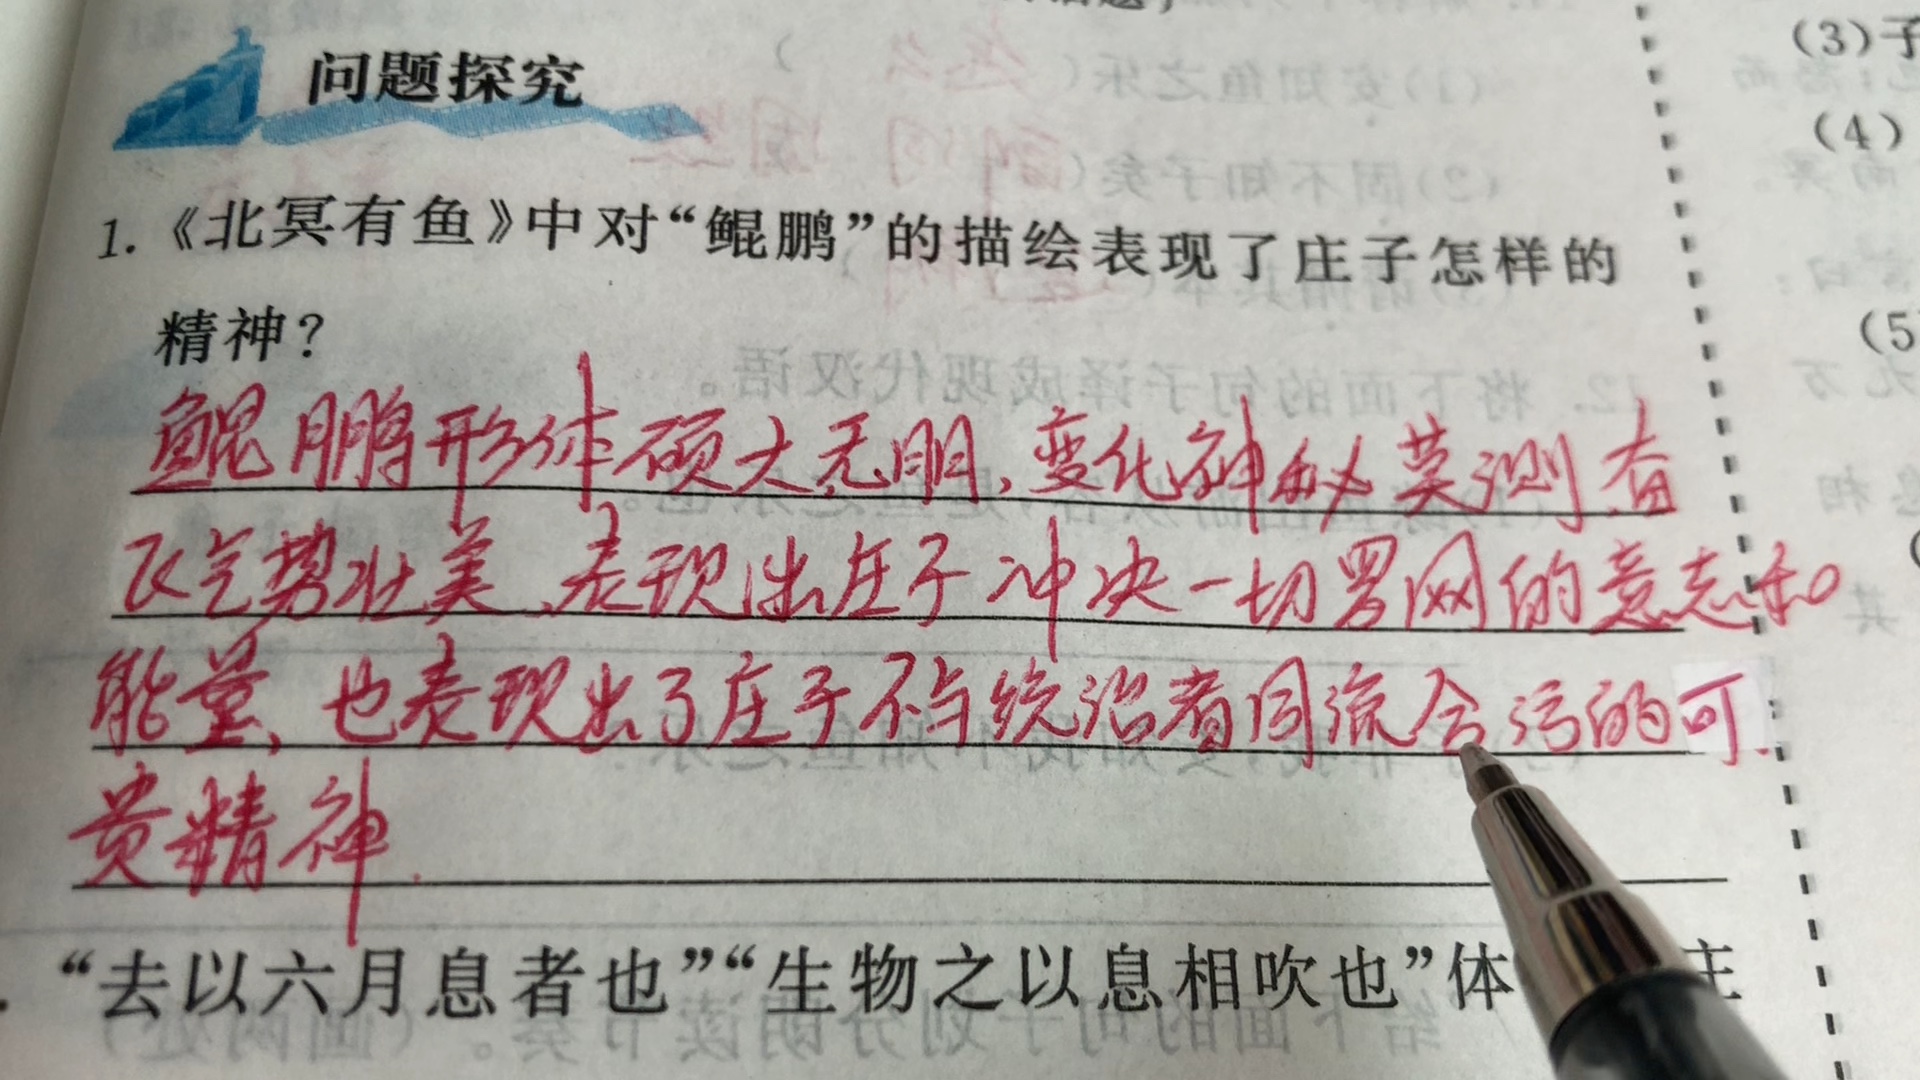 问题探究
1.《北冥有鱼》中对“鲲鹏”的描绘表现了庄子怎样的
精神？
鲲鹏形体硕大无朋、变化神秘莫测、奋
飞气势壮美、表现出庄子冲决一切罗网的意志和
能量、也表现出了庄子不与统治者同流合污的可
贵精神.
“去以六月息者也”“生物之以息相吹也”体
(3)子
(4)
(5